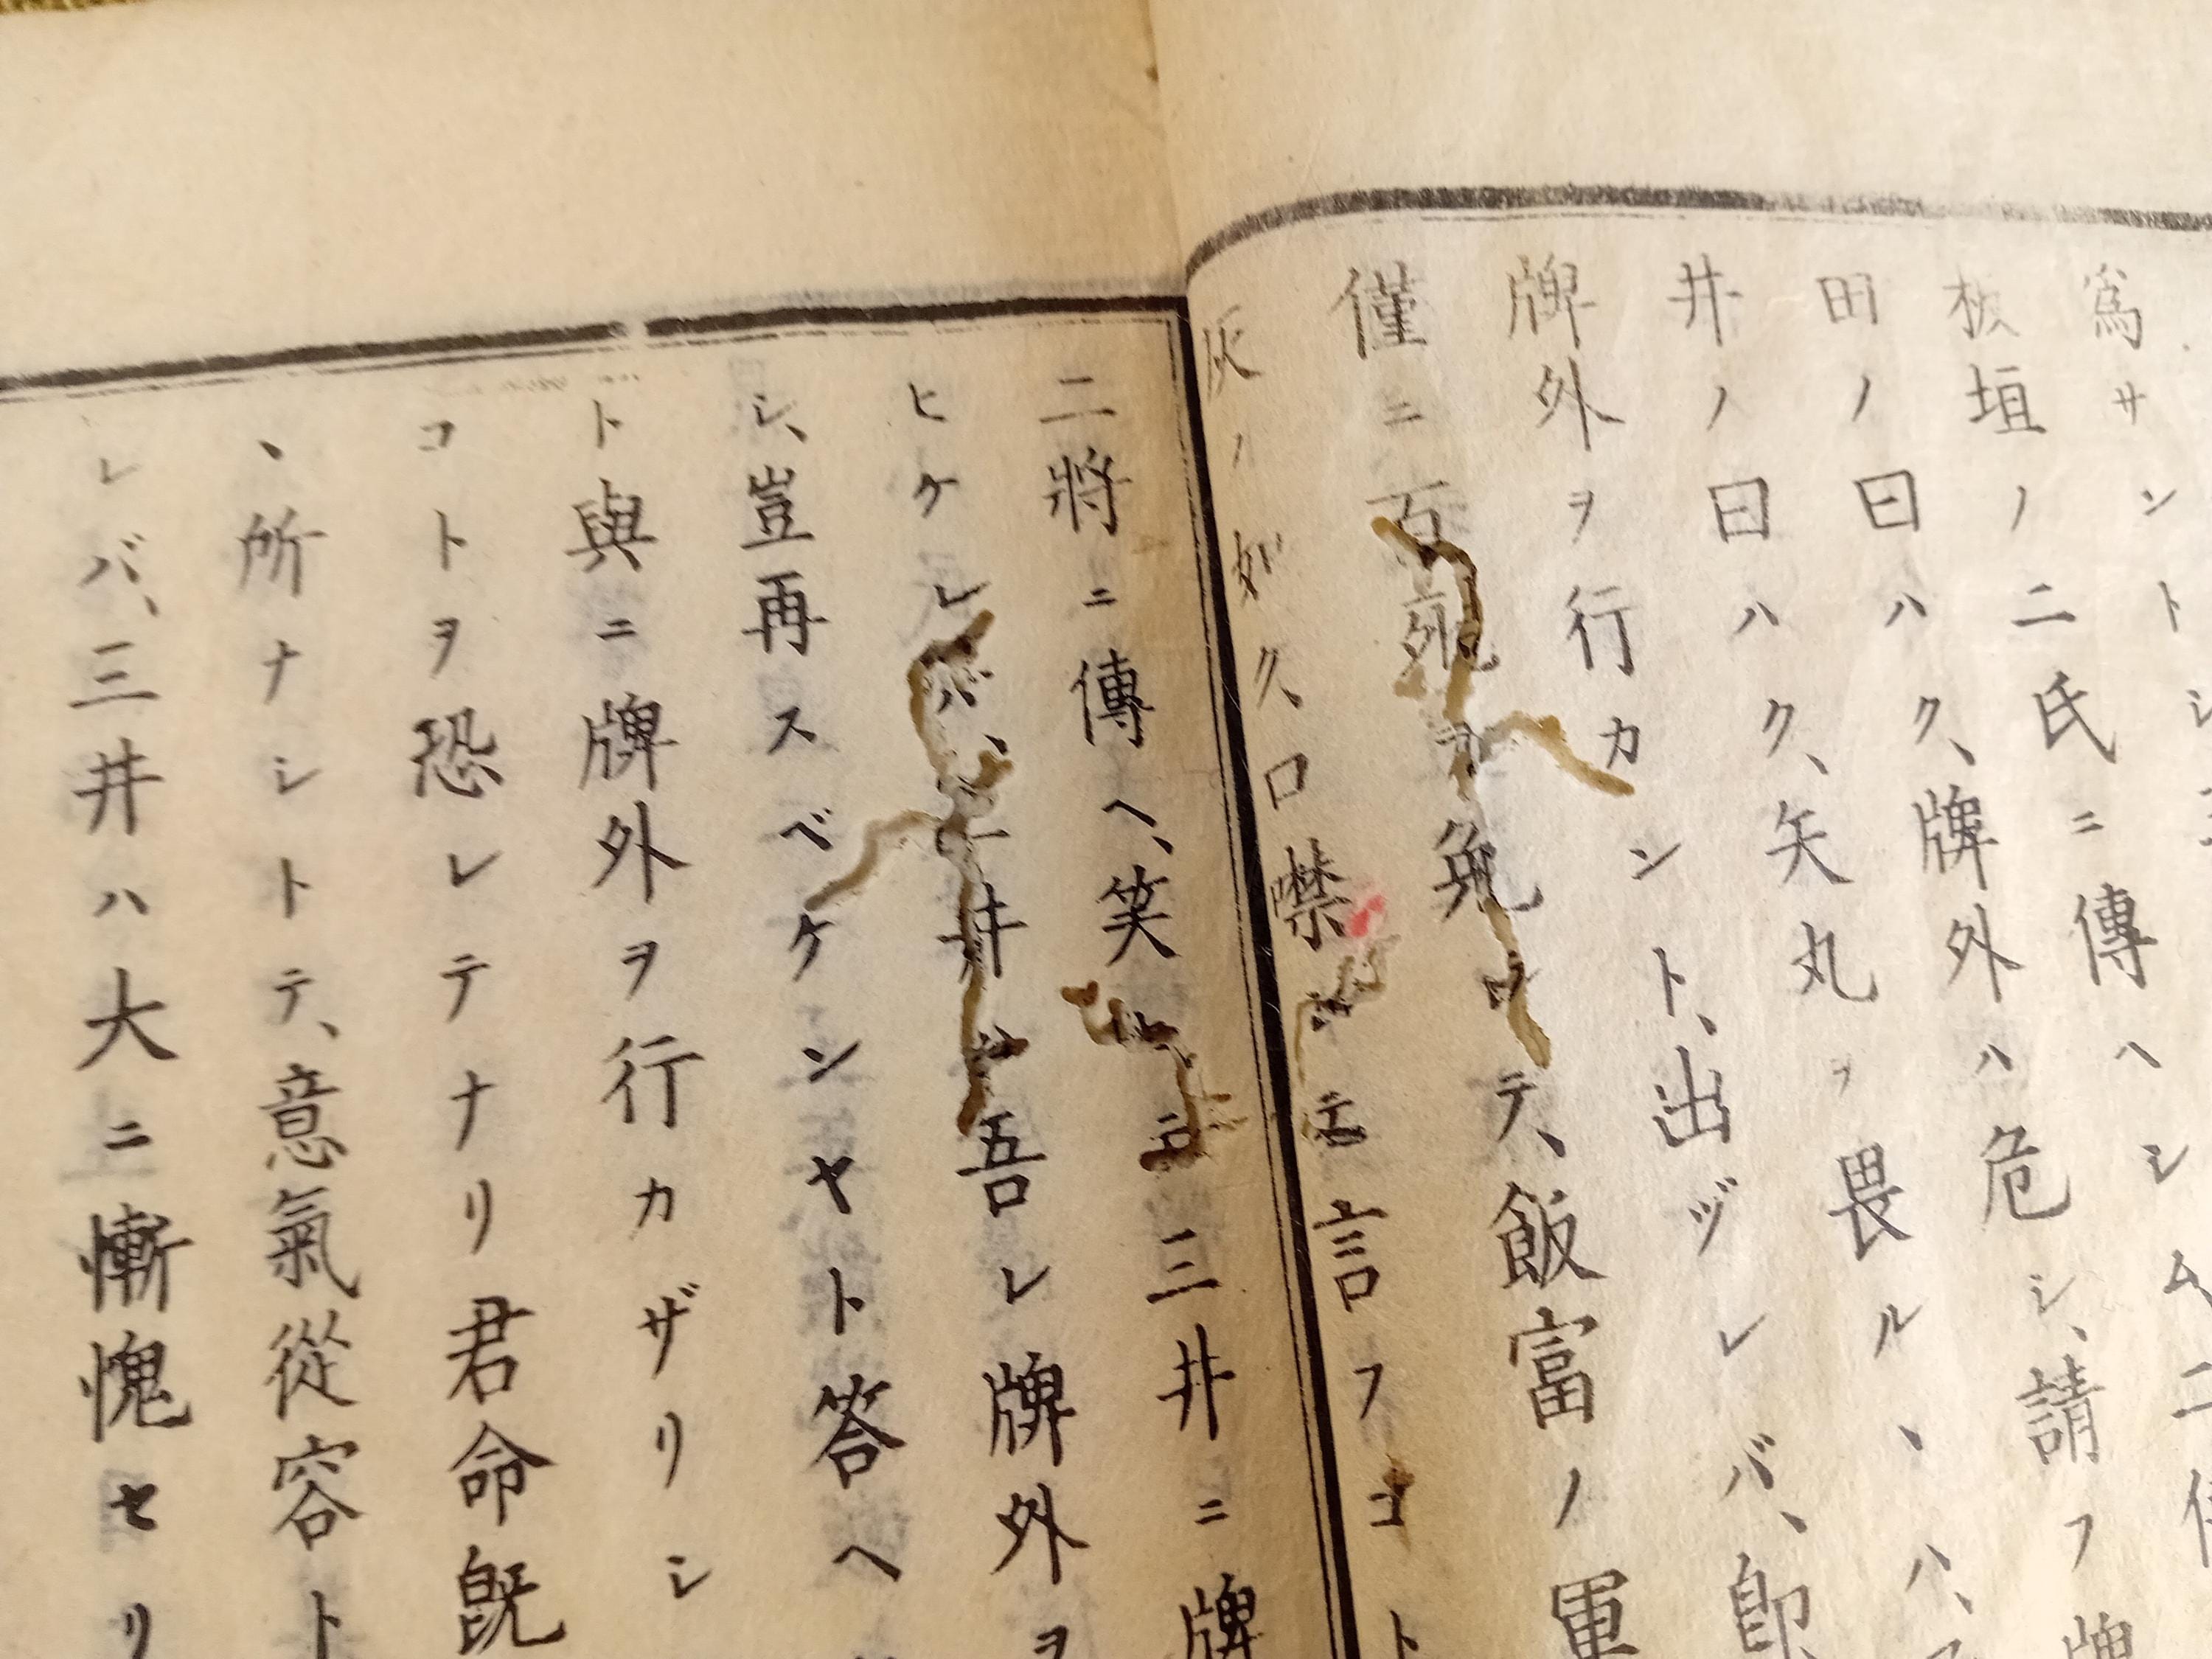 爲サントシ
板垣ノ二氏ニ傳ヘシム二
田ノ曰ハク、牌外ハ危シ、請フ牌
井ノ曰ハク、矢丸ヲ畏ルヽハ、
牌外ヲ行カント、出ヅレバ、卽
僅ニ百死ヲ免ロテ、飯富ノ軍
灰ノ如久口噤シテ言フコト
二將ニ傳ヘ、笑三井ニ牌
ヒケレバ、三井ハ吾レ牌外ヲ
シ、豈再スベケンヤト答ヘ
ト與ニ牌外ヲ行カザリシ
コトヲ恐レテナリ君命旣
ヽ所ナシトテ、意氣從容ト
レバ、三井ハ大ニ慚愧セリ